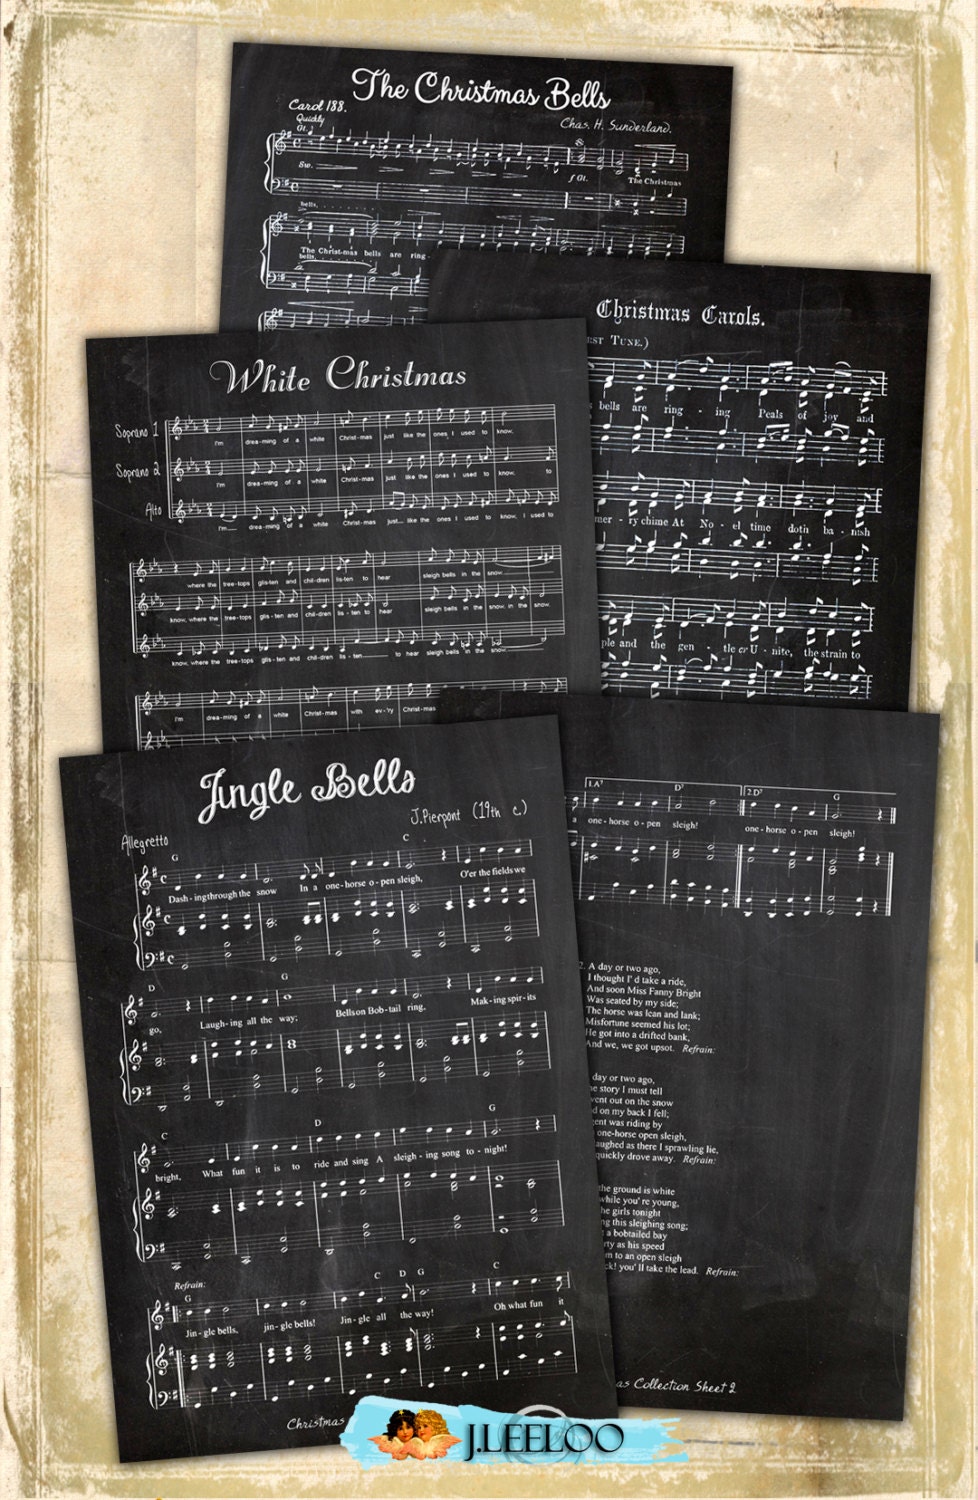 The Christmas Bells
Carol 188.
Chas. H. Sunderland.
Quickly
Gt.
Sw.
f Gt.
The Christmas
bells,
The Christ-mas bells are ring-
bells.
Christmas Carols.
EST TUNE.)
bells are ring - ing Peals of joy and
mer - ry chime At No - el time doth ba - nish
ple and the gen - tle or U - nite, the strain to
White Christmas
Soprano 1
I'm drea-ming of a white Christ-mas just like the ones I used to know,
Soprano 2
I'm drea-ming of a white Christ-mas just like the ones I used to know. to
Alto
I'm drea-ming of a white Christ-mas just like the ones I used to know, I used to
where the tree-tops glis-ten and chil-dren lis-ten to hear sleigh bells in the snow.
know, where the tree-tops glis-ten and chil-dren lis-ten to hear sleigh bells in the snow. in the snow.
know, where the tree-tops glis-ten and chil-dren lis-ten to hear sleigh bells in the snow.
I'm drea-ming of a white Christ-mas with ev-'ry Christ-mas
Jingle Bells
J.Pierpont (19th c.)
Allegretto
G C
Dash-ing through the snow In a one-horse o-pen sleigh, O'er the fields we
D G
go, Laugh-ing all the way; Bells on Bob-tail ring, Mak-ing spir-its
C D G
bright, What fun it is to ride and sing A sleigh-ing song to-night!
Refrain:
G C D G C
Jin-gle bells, jin-gle bells! Jin-gle all the way! Oh what fun it
Christmas
1.A7 D7 2.D7 G
a one-horse o-pen sleigh! one-horse o-pen sleigh!
2. A day or two ago,
I thought I'd take a ride,
And soon Miss Fanny Bright
Was seated by my side;
The horse was lean and lank;
Misfortune seemed his lot;
He got into a drifted bank,
And we, we got upsot. Refrain:
day or two ago,
he story I must tell
went out on the snow
d on my back I fell;
gent was riding by
one-horse open sleigh,
aughed as there I sprawling lie,
quickly drove away. Refrain:
the ground is white
while you're young,
he girls tonight
ng this sleighing song;
a bobtailed bay
rty as his speed
m to an open sleigh
ck! you'll take the lead. Refrain:
as Collection Sheet 2
J.LEELOO